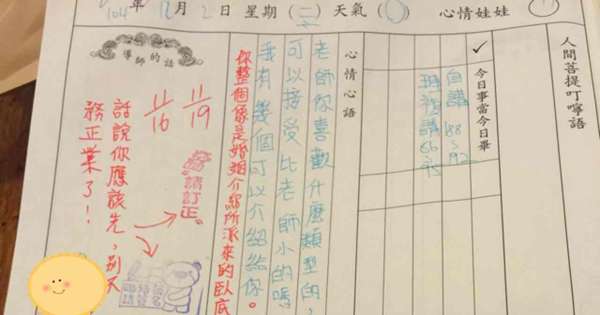 年 月2日 星期(二) 天氣( ) 心情娃娃
人間菩提叮嚀語
✓ 今日事當今日畢
188~192
心情心語
老師你喜歡什麼類型的，
可以接受比老師小的嗎，
我有幾個可以介紹給你。
你整個像是婚姻介紹所派來的臥底。
導師的話
11/19
11/16
請訂正
話說你應該先，別不
務正業了!!